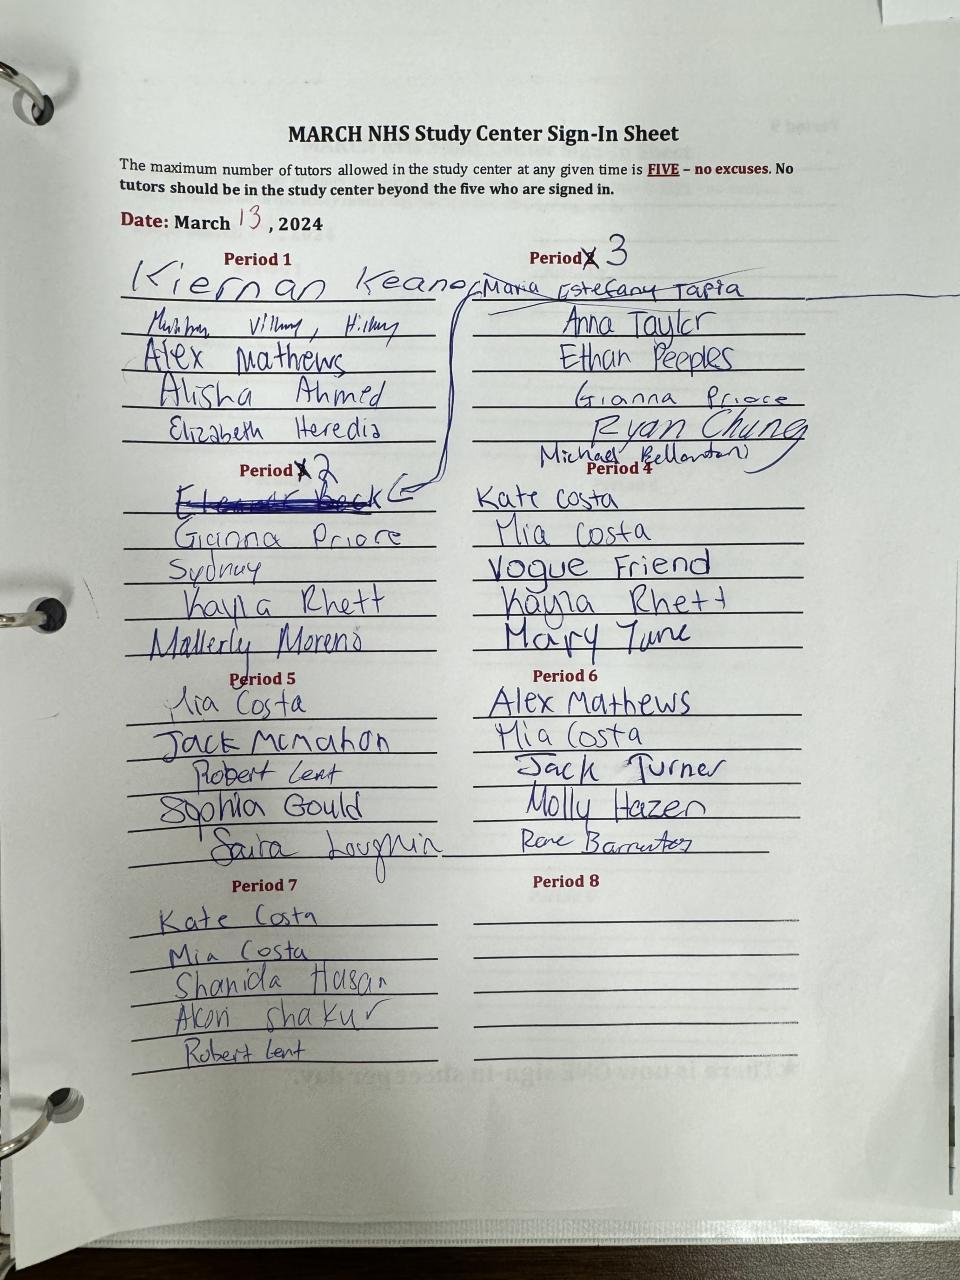 MARCH NHS Study Center Sign-In Sheet
The maximum number of tutors allowed in the study center at any given time is FIVE – no excuses. No
tutors should be in the study center beyond the five who are signed in.
Date: March 13, 2024
Period 1
Kiernan Keane
Hillary
Alex Mathews
Alisha Ahmed
Elizabeth Heredia
Period 3
Maria Estefany Tapia
Anna Taylor
Ethan Peeples
Gianna Priore
Ryan Chung
Michael Bellantoni
Period 2
Gianna Priore
Sydney
Kayla Rhett
Mallerly Moreno
Period 4
Kate Costa
Mia Costa
Vogue Friend
Kayla Rhett
Mary June
Period 5
Mia Costa
Jack McMahon
Robert Lent
Sophia Gould
Saira Loughlin
Period 6
Alex Mathews
Mia Costa
Jack Turner
Molly Hazen
Rene Barrientos
Period 7
Kate Costa
Mia Costa
Shanida Hasan
Akon Shakur
Robert Lent
Period 8